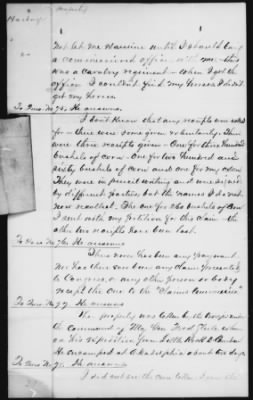 not let me examine until I should bring
a commissioned officer with me - this
was a Cavalry regiment - when I got the
officer I couldn't find my horses. I didn't
get my horses
To Inter No 74. He answers.
I don't know that any receipts were asked
for - there were some given voluntarily. There
were three receipts given - One for three hundred
bushels of corn. One for two hundred and
sixty bushels of corn and one for my oxen
They were in pencil writing and were signed
by different parties, but the names I do not
now recollect. The one for 260 bushels of corn
I sent with my petition for this claim - the
other two receipts have been lost.
To Inter No 76. He answers
There never has been any payment
nor has there ever been any claim presented
to Congress or any other person or body
except the one to the "Claims Commission"
To Inter No 77. He answers
The property was taken by the troops under
the command of Maj Gen Fred Steele, when
on his expedition from Little Rock to Camden
He encamped at Arkadelphia about two days
To Inter No 78. He answers
I did not see the corn taken